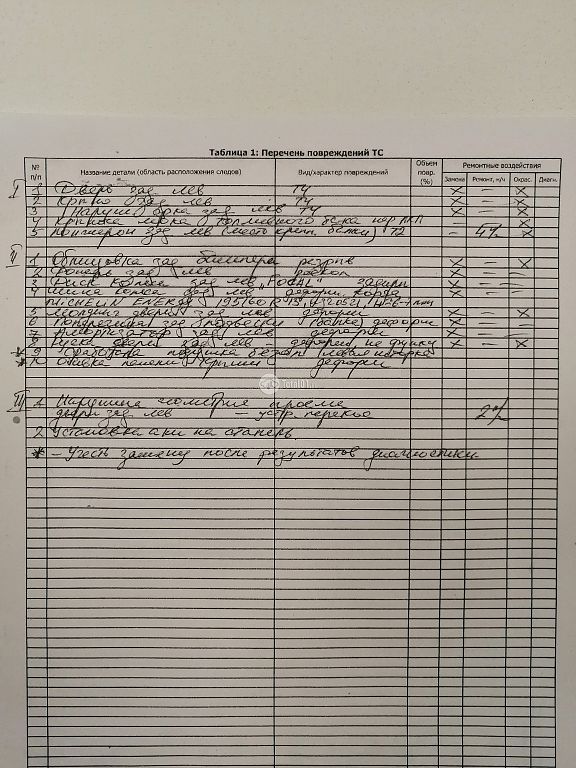 Таблица 1: Перечень повреждений ТС
№ п/п Название детали (область расположения следов) Вид/характер повреждений Объем повр. (%) Ремонтные воздействия
Замена Ремонт, н/ч Окрас. Диагн.
I 1 Дверь зад лев ТЧ X – X
2 Крыло зад лев ТЧ X – X
3 Наружн. арка зад лев ТЧ X – X
4 Крышка лючка топливного бака X
5 Лонжерон зад лев (место креп. балки) Т2 – 4 X
II 1 Облицовка зад бампера разрыв X – X
2 Фонарь зад лев раскол X – –
3 Диск колеса зад лев задиры X – –
4 Шина колеса зад лев X – –
MICHELIN ENERGY 195/60 R15
5 Молдинг двери зад лев деформ X – X
6 зад подвески (балка) деформ X – –
7 Амортизатор зад лев деформ X – –
8 Ручка двери зад лев – деформ, не функц X – X
* 9 Сработала подушка безоп
* 10 Обивка крыши деформ
III 1 Нарушение геометрии проема
двери зад лев – устр. перекос 2
2 Установка а/м на стапель
* – Учесть замену после результатов диагностики